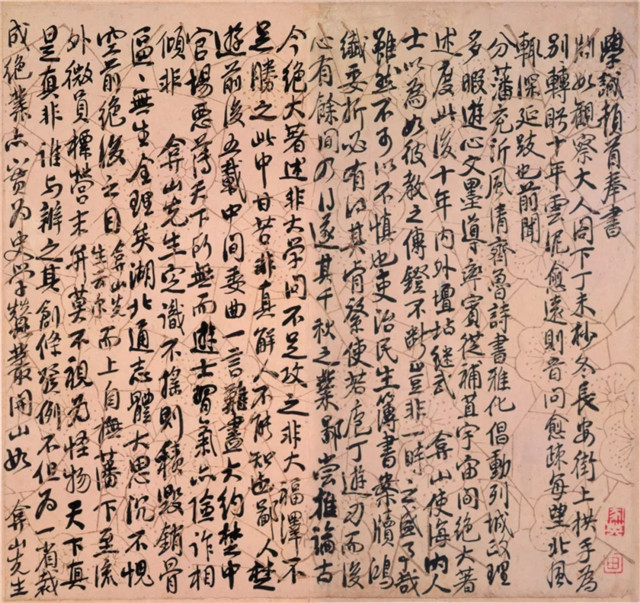 學誠頓首奉書
淵如觀察大人閣下丁未杪冬長安街上拱手為
別轉盼十年雲泥愈遠則音問愈疎每望北風
輒深延跂也前聞
分藩兗沂風清齊魯詩書雅化倡動列城政理
多暇遊心文墨導率賓從補苴宇宙間絕大著
述度此後十年內外壇坫繼武弇山使海內人
士以為如彼教之傳鐙不斷豈非一時之盛事哉
雖然不可以不慎也吏治民生簿書案牘鴻
纖委折必有得其肯綮使若庖丁遊刃而後
心有餘間乃得遂其千秋之業鄙嘗推論古
今絕大著述非大學問不足攻之非大福澤不
足勝之此中甘苦非真解人不能知也鄙人楚
遊前後五載中間委曲一言難盡大約楚中
官場惡薄天下所無而遊士習氣亦險詐相
傾非弇山先生定識不搖則積毀銷骨
區區無生全理矣湖北通志體大思沉不愧
空前絕後之目弇山先生云爾而上自撫藩下至流
外微員標營末弁莫不視為怪物天下真
是真非誰與辨之其創條發例不但為一省裁
成絕業亦實為史學蠶叢開山如弇山先生